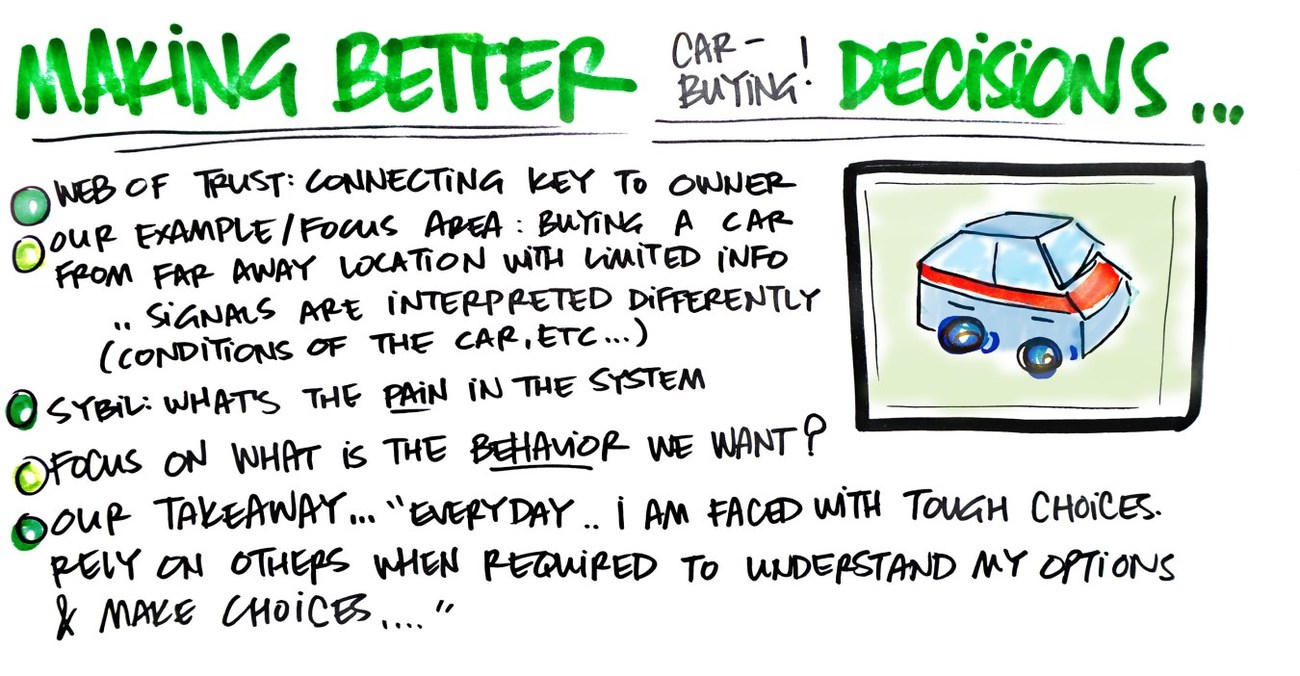 MAKING BETTER CAR-BUYING! DECISIONS...
WEB OF TRUST: CONNECTING KEY TO OWNER
OUR EXAMPLE/FOCUS AREA: BUYING A CAR
FROM FAR AWAY LOCATION WITH LIMITED INFO
.. SIGNALS ARE INTERPRETED DIFFERENTLY
(CONDITIONS OF THE CAR, ETC...)
SYBIL: WHAT'S THE PAIN IN THE SYSTEM
FOCUS ON WHAT IS THE BEHAVIOR WE WANT?
OUR TAKEAWAY... "EVERYDAY .. I AM FACED WITH TOUGH CHOICES.
RELY ON OTHERS WHEN REQUIRED TO UNDERSTAND MY OPTIONS
& MAKE CHOICES...."